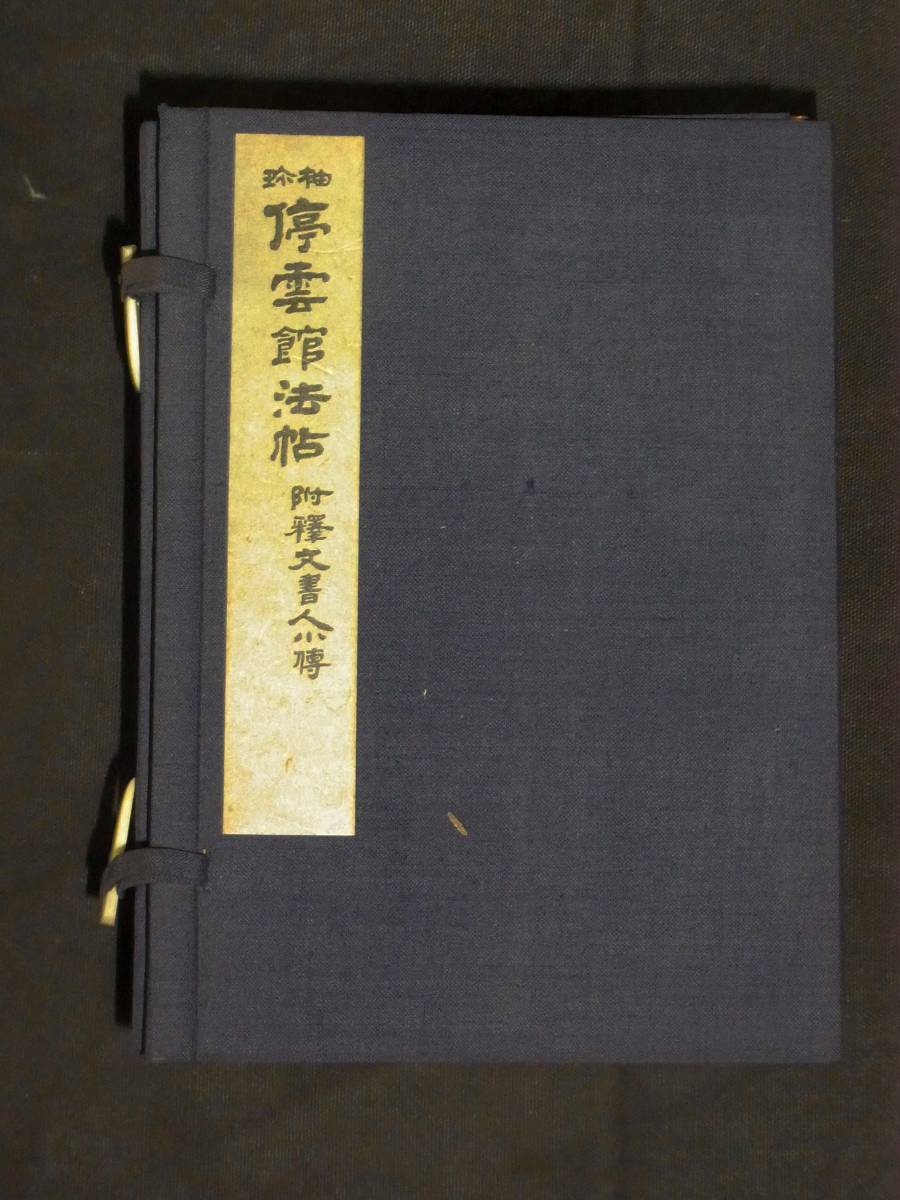 袖珍
停雲館法帖
附釋文書人小傳